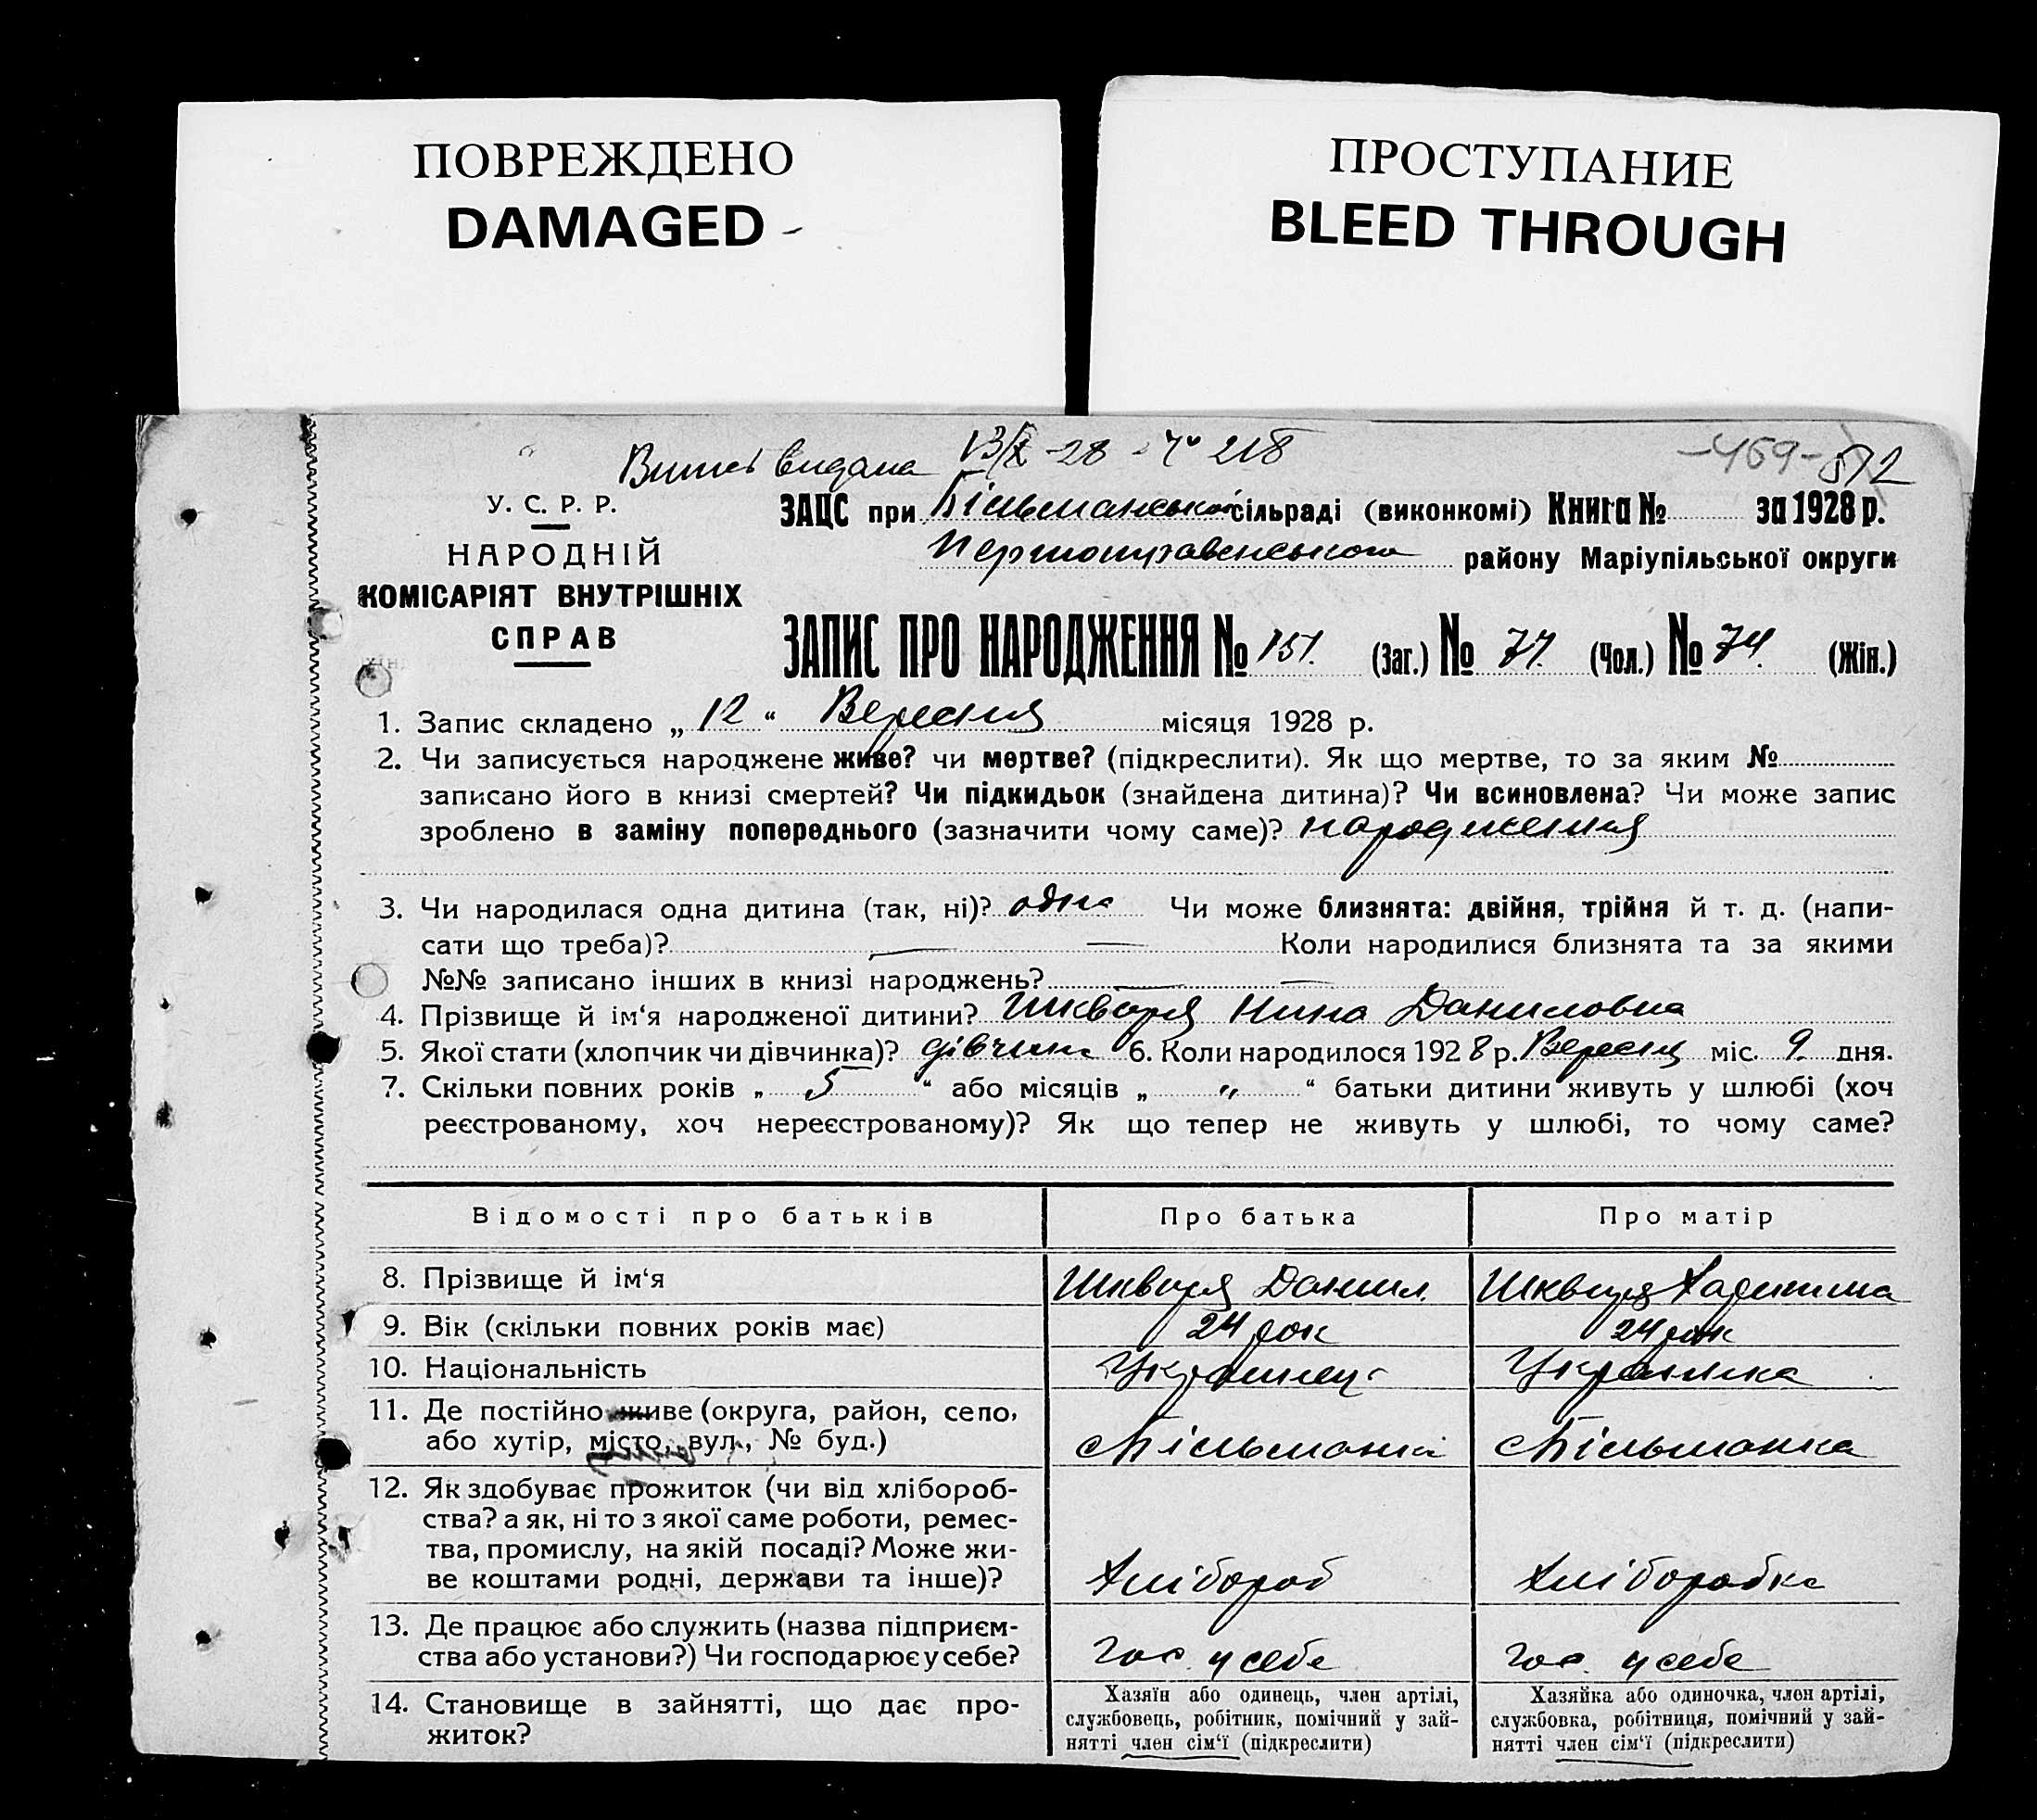 ПОВРЕЖДЕНО
DAMAGED
ПРОСТУПАНИЕ
BLEED THROUGH
видана 13/X-28 - № 218
-469- 512
У. С. Р. Р.
НАРОДНІЙ
КОМІСАРІЯТ ВНУТРІШНІХ
СПРАВ
ЗАЦС при Більманській сільраді (виконкомі) Книга № за 1928 р.
Першотравенського району Маріупільської округи
ЗАПИС ПРО НАРОДЖЕННЯ № 151. (Заг.) № 77. (Чол.) № 74. (Жін.)
1. Запис складено „ 12 “ Вересня місяця 1928 р.
2. Чи записується народжене живе? чи мертве? (підкреслити). Як що мертве, то за яким №
записано його в книзі смертей? Чи підкидьок (знайдена дитина)? Чи всиновлена? Чи може запис
зроблено в заміну попереднього (зазначити чому саме)? народження
3. Чи народилася одна дитина (так, ні)? одна Чи може близнята: двійня, трійня й т. д. (напи-
сати що треба)? — — Коли народилися близнята та за якими
№№ записано інших в книзі народжень? — —
4. Прізвище й ім‘я народженої дитини? Шкваря Нина Даниловна
5. Якої стати (хлопчик чи дівчинка)? дівчина 6. Коли народилося 1928 р. Вересня міс. 9. дня.
7. Скільки повних років „ 5 “ або місяців „ „ “ батьки дитини живуть у шлюбі (хоч
реєстрованому, хоч нереєстрованому)? Як що тепер не живуть у шлюбі, то чому саме?
Відомості про батьків
Про батька
Про матір
8. Прізвище й ім‘я
Шкваря Данил.
Шкваря
9. Вік (скільки повних років має)
24 рок
24 рок
10. Національність
Українець
Українка
11. Де постійно живе (округа, район, село,
або хутір, місто, вул., № буд.)
с Більманка
с Більманка
12. Як здобуває прожиток (чи від хлібороб-
ства? а як, ні то з якої саме роботи, ремес-
тва, промислу, на якій посаді? Може жи-
ве коштами родні, держави та інше)?
Хлібороб
Хліборобка
13. Де працює або служить (назва підприєм-
ства або установи?) Чи господарює у себе?
Гос. у себе
Гос. у себе
14. Становище в зайнятті, що дає про-
житок?
Хазяїн або одинець, член артілі,
службовець, робітник, помічний у зай-
нятті член сім‘ї (підкреслити)
Хазяйка або одиночка, член артілі,
службовка, робітниця, помічний у зай-
нятті член сім‘ї (підкреслити)